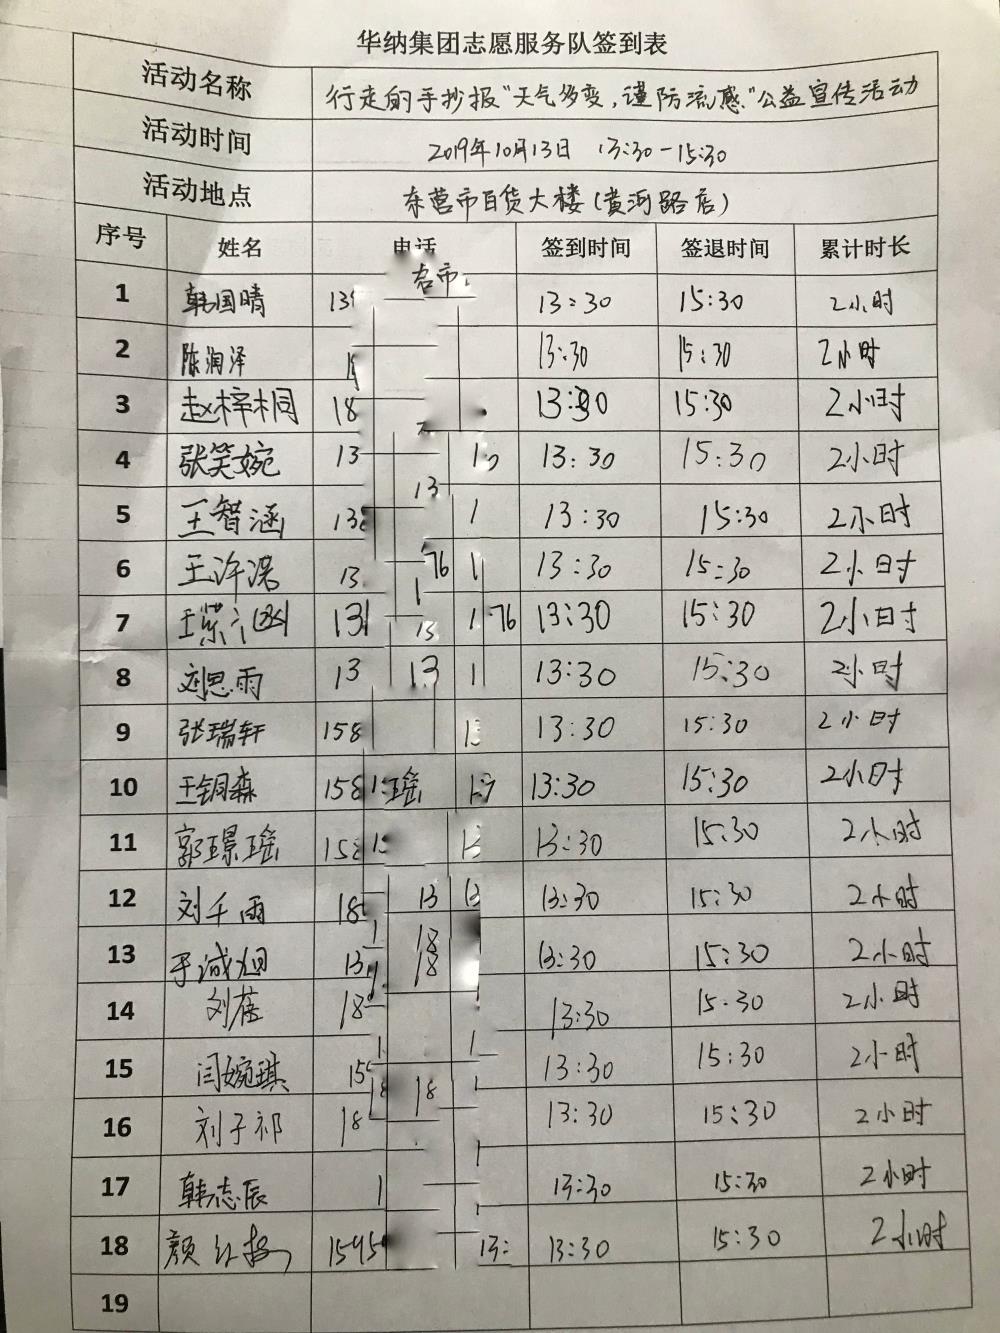 华纳集团志愿服务队签到表
活动名称 行走的手抄报"天气多变,谨防流感"公益宣传活动
活动时间 2019年10月13日 13:30-15:30
活动地点 东营市百货大楼(黄河路店)
序号 姓名 电话 签到时间 签退时间 累计时长
1 韩国晴 13 13:30 15:30 2小时
2 陈润泽 13:30 15:30 2小时
3 赵梓桐 18 13:30 15:30 2小时
4 张笑婉 13 13:30 15:30 2小时
5 王智涵 138 13:30 15:30 2小时
6 王许诺 13 13:30 15:30 2小时
7 王紫 131 13:30 15:30 2小时
8 刘思雨 13 13:30 15:30 2小时
9 张瑞轩 158 13:30 15:30 2小时
10 王钥森 158 瑶 13:30 15:30 2小时
11 郭璟瑶 158 13:30 15:30 2小时
12 刘千雨 18 13 13:30 15:30 2小时
13 于诚旭 13 18 18 13:30 15:30 2小时
14 刘蓓 18 13:30 15:30 2小时
15 闫婉琪 15 13:30 15:30 2小时
16 刘子祁 18 18 13:30 15:30 2小时
17 韩志辰 1 13:30 15:30 2小时
18 颜 1595 13: 13:30 15:30 2小时
19